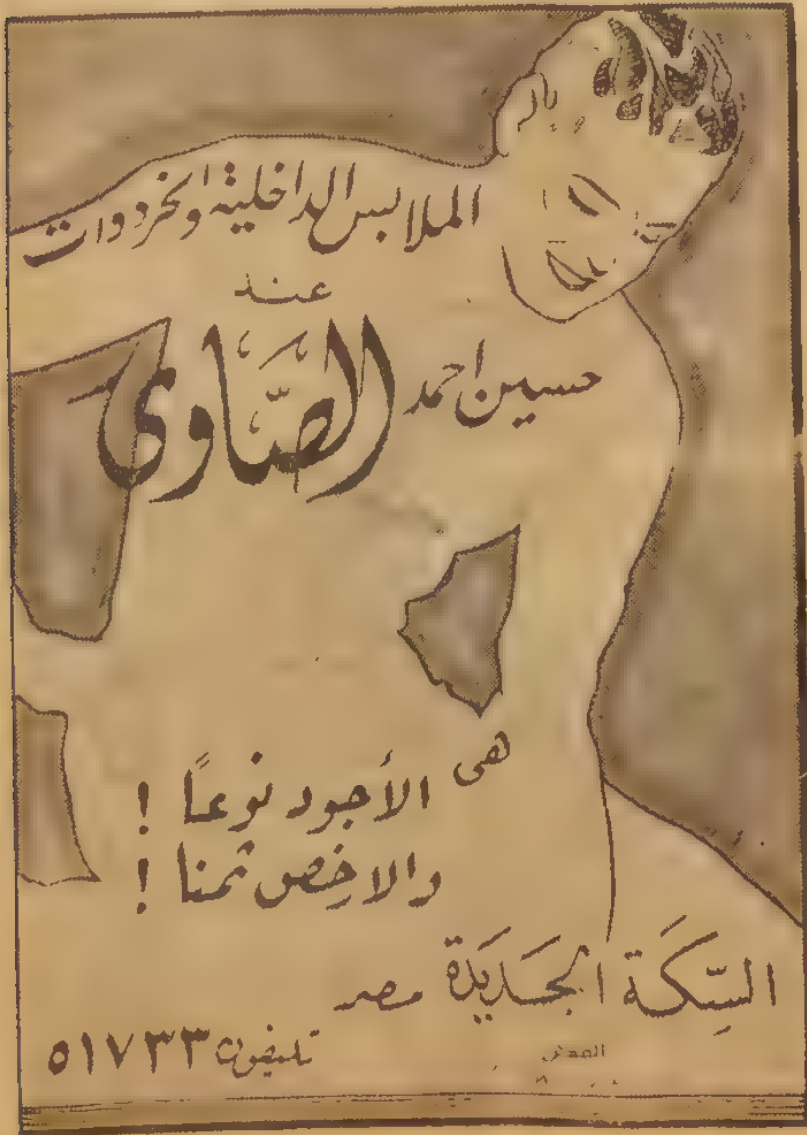 الملابس الداخلية والخردوات
عند
حسين احمد الصَّاوى
هى الأجود نوعاً !
والاخِص ثمنا !
السِّكَة الجَديَدة مصر
تليفون ٥١٧٣٣